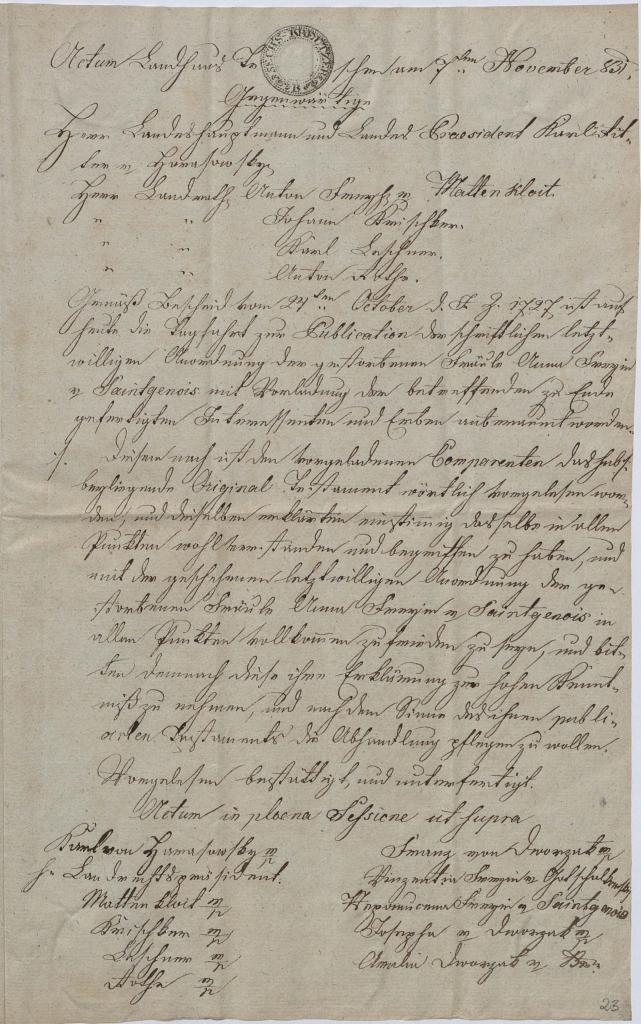 Actum Landhaus Te
SECHS KREUTZER
schen am 7ten November 831.
Gegenwärtige
Herr Landeshauptmann und Landes Praesident Karl Rit-
ter v Harasowsky.
Herr Landrath Anton Freyh. v. Mattenkloit.
" " Johann Krischker.
" " Karl Leschner.
" " Anton Rothe.
Gemäß Bescheid vom 24ten October d. J. Z. 1727 ist auf
heute die Tagfahrt zur Publication der schriftlichen letzt-
willigen Anordnung der gestorbenen Fräule Anna Freyin
v Saintgenois mit Vorladung der betreffenden zu Ende
gefertigten Interessenten und Erben anberaumt worden.
./. Diesem nach ist den vorgeladenen Comparenten das sub ./.
beyliegende Original Testament wörtlich vorgelesen wor-
den, und dieselben erklärten einstimmig dasselbe in allen
Punkten wohl verstanden und begriffen zu haben, und
mit der geschehenen letztwilligen Anordnung der ge-
storbenen Fräule Anna Freyin v Saintgenois in
allen Punkten vollkommen zufrieden zu seyn, und bit-
ten demnach diese ihre Erklärung zur hohen Kennt-
niß zu nehmen, und nach dem Sinne des ihnen publi-
cirten Testaments die Abhandlung pflegen zu wollen.
Vorgelesen bestättigt, und unterfertigt.
Actum in plena Sessione ut supra
Karl von Harasowsky m/p
Landrechtspräsident.
Mattenkloit m/p
Krischker m/p
Leschner m/p
Rothe m/p
Franz von Dworzak m/p
Vinzentia Freyin v
Nepomucena Freyin v Saintgenois
Josepha v Dworzak m/p
Amalie Dworzak v
23